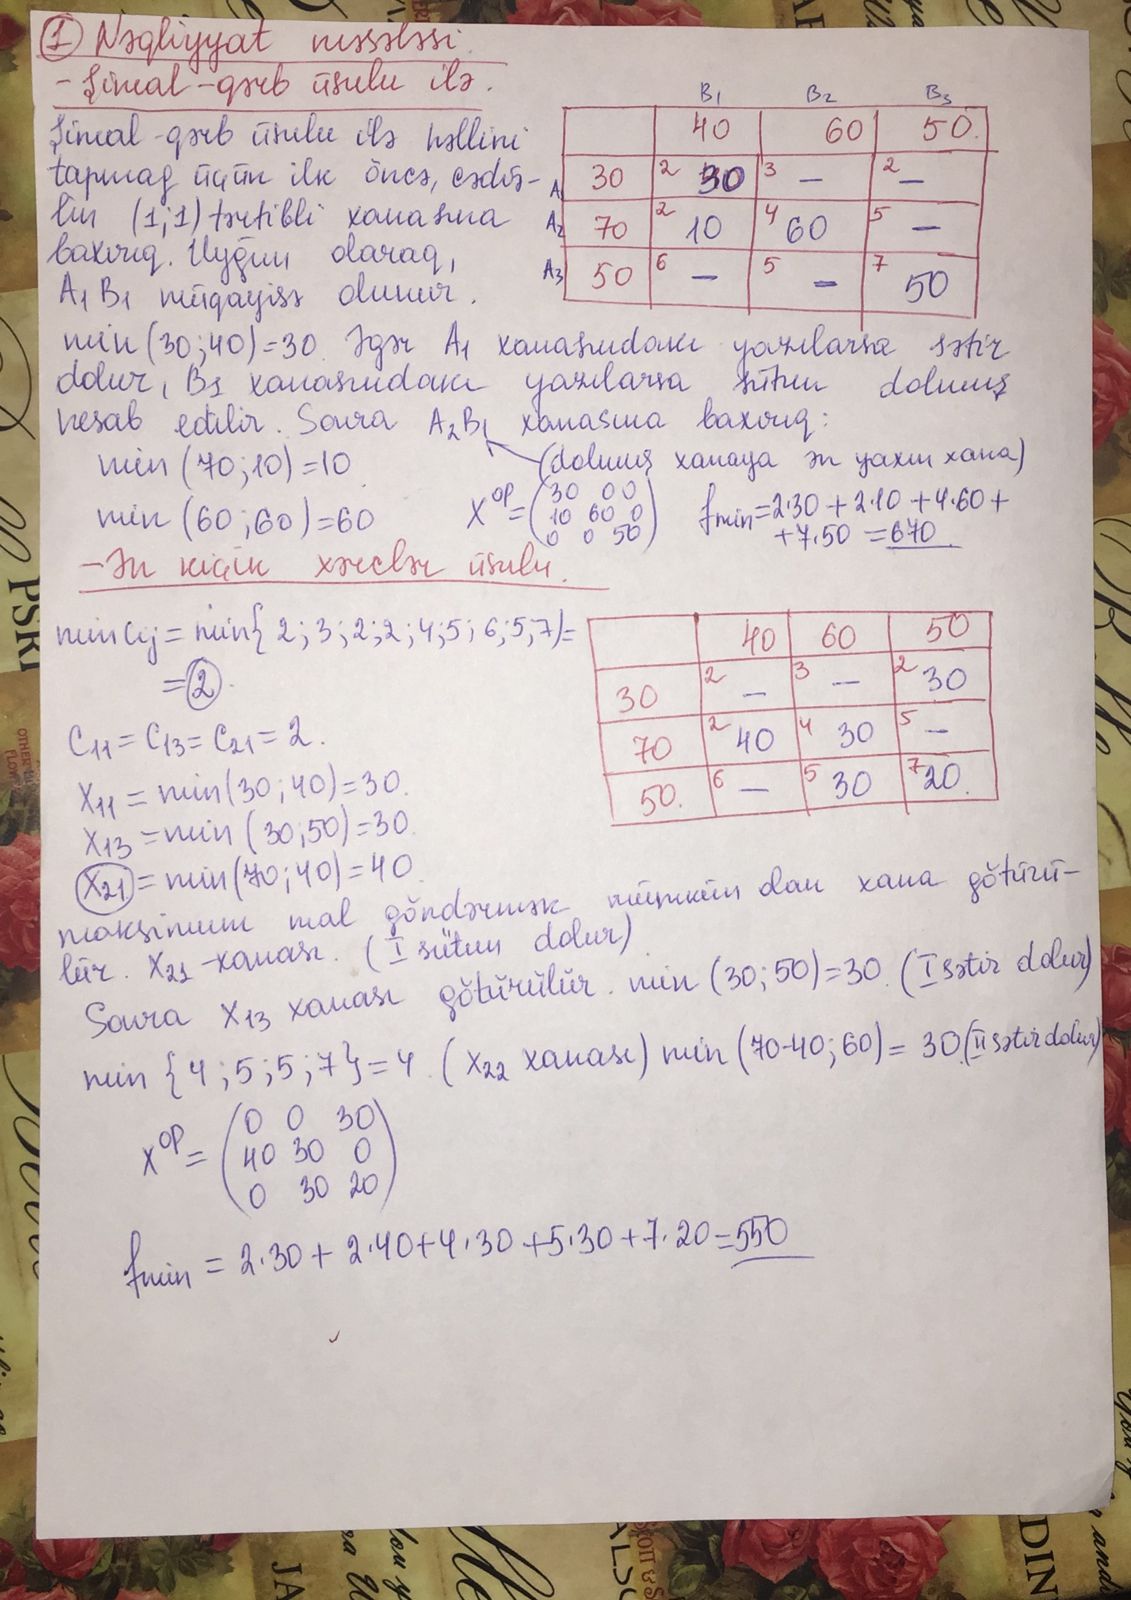 ① Nəqliyyat məsələsi.
- Şimal-qərb üsulu ilə.
Şimal-qərb üsulu ilə həllini
tapmaq üçün ilk öncə, cədvə-
lin (1;1) tərtibli xanasına
baxırıq. Uyğun olaraq,
A₁ B₁ müqayisə olunur.
B₁ B₂ B₃
40 60 50.
A₁ 30 2 30 3 – 2 –
A₂ 70 2 10 4 60 5 –
A₃ 50 6 – 5 – 7 50
min(30;40)=30. Əgər A₁ xanasındakı yazılarsa sətir
dolur, B₁ xanasındakı yazılarsa sütun dolmuş
hesab edilir. Sonra A₂B₁ xanasına baxırıq:
min(70;10)=10 (dolmuş xanaya ən yaxın xana)
min(60;60)=60
X^op = (30 0 0
10 60 0
0 0 50)
fmin=2·30+2·10+4·60+
+7·50=670.
- Ən kiçik xərclər üsulu.
min cij = min{2;3;2;2;4;5;6;5;7}=
=②.
40 60 50
30 2 – 3 – 2 30
70 2 40 4 30 5 –
50. 6 – 5 30 7 20.
C₁₁=C₁₃=C₂₁=2.
X₁₁=min(30;40)=30.
X₁₃=min(30;50)=30.
X₂₁=min(70;40)=40.
maksimum mal göndərmək mümkün olan xana götürü-
lür. X₂₁-xanası. (I sütun dolur)
Sonra X₁₃ xanası götürülür. min(30;50)=30. (I sətir dolur)
min{4;5;5;7}=4. (X₂₂ xanası) min(70-40;60)=30.(II sətir dolur)
X^op = (0 0 30
40 30 0
0 30 20)
fmin = 2·30+2·40+4·30+5·30+7·20=550